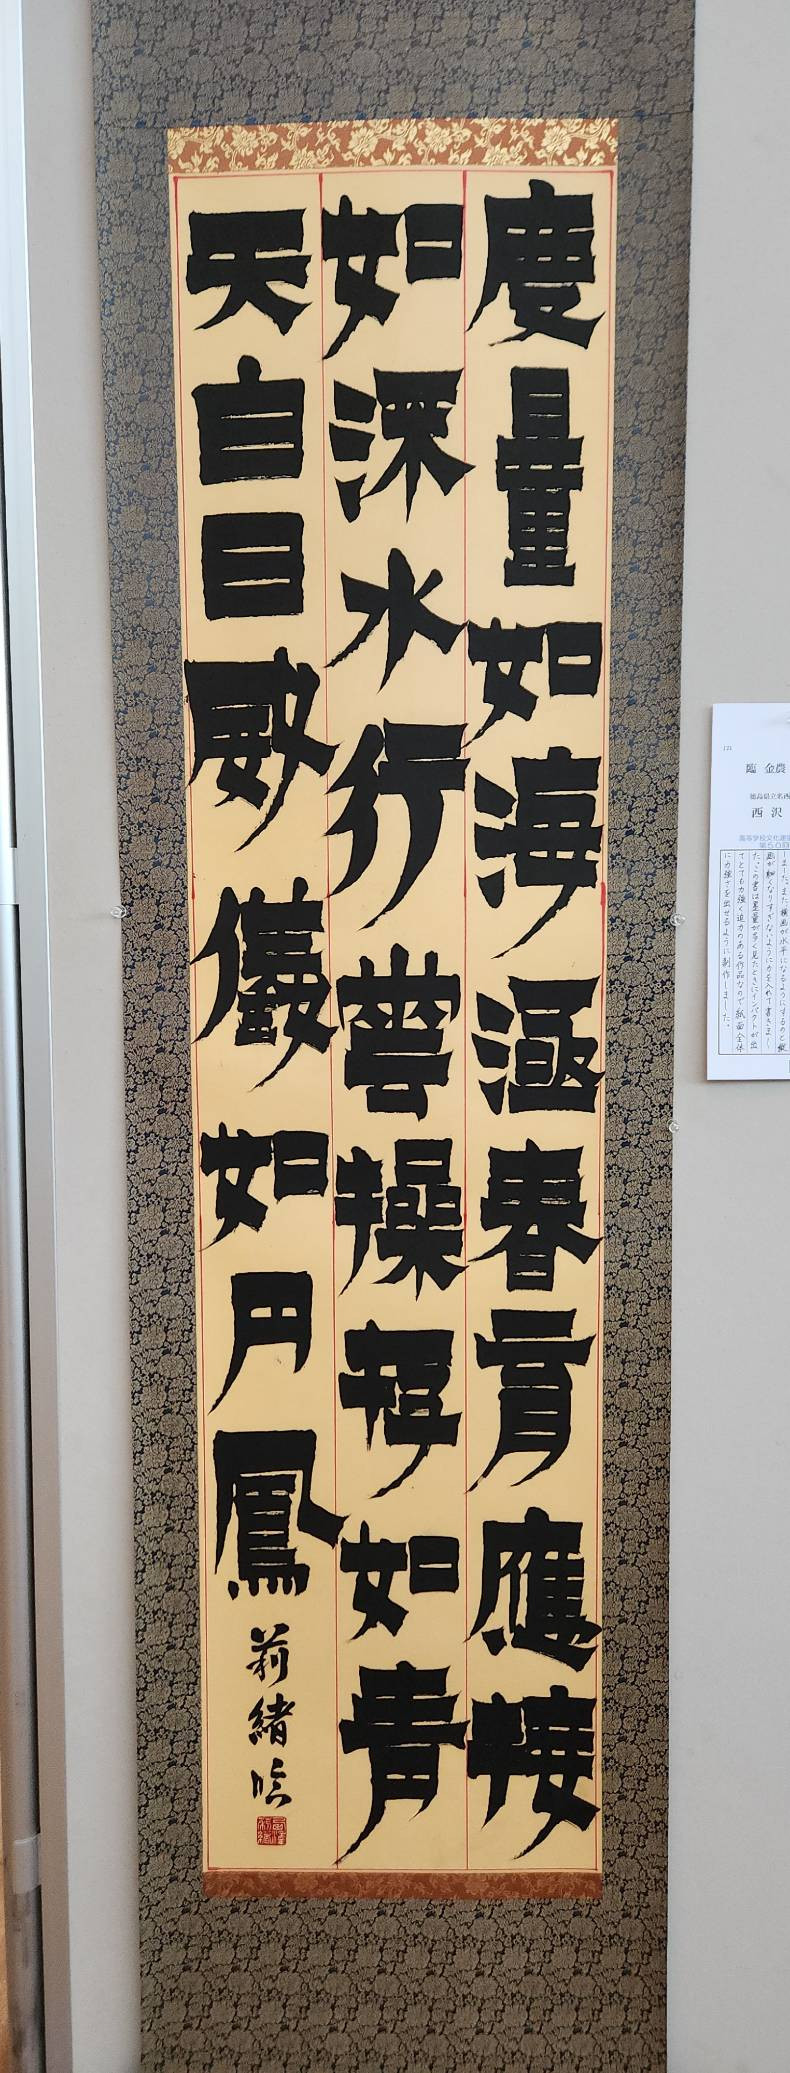 度量如海涵春育應接
如流水行雲操存如青
天白日威儀如丹鳳
莉緒臨
121
臨 金農
徳島県立名西
西沢
高等学校文化連
第50回
しました。また、横画が水平になるようにするのと縦
画が細くなりすぎないように力を入れて書きまし
た。この書は墨量が多く見たときにインパクトが出
てとても力強く迫力のある作品なので紙面全体
に力強さを出せるように制作しました。